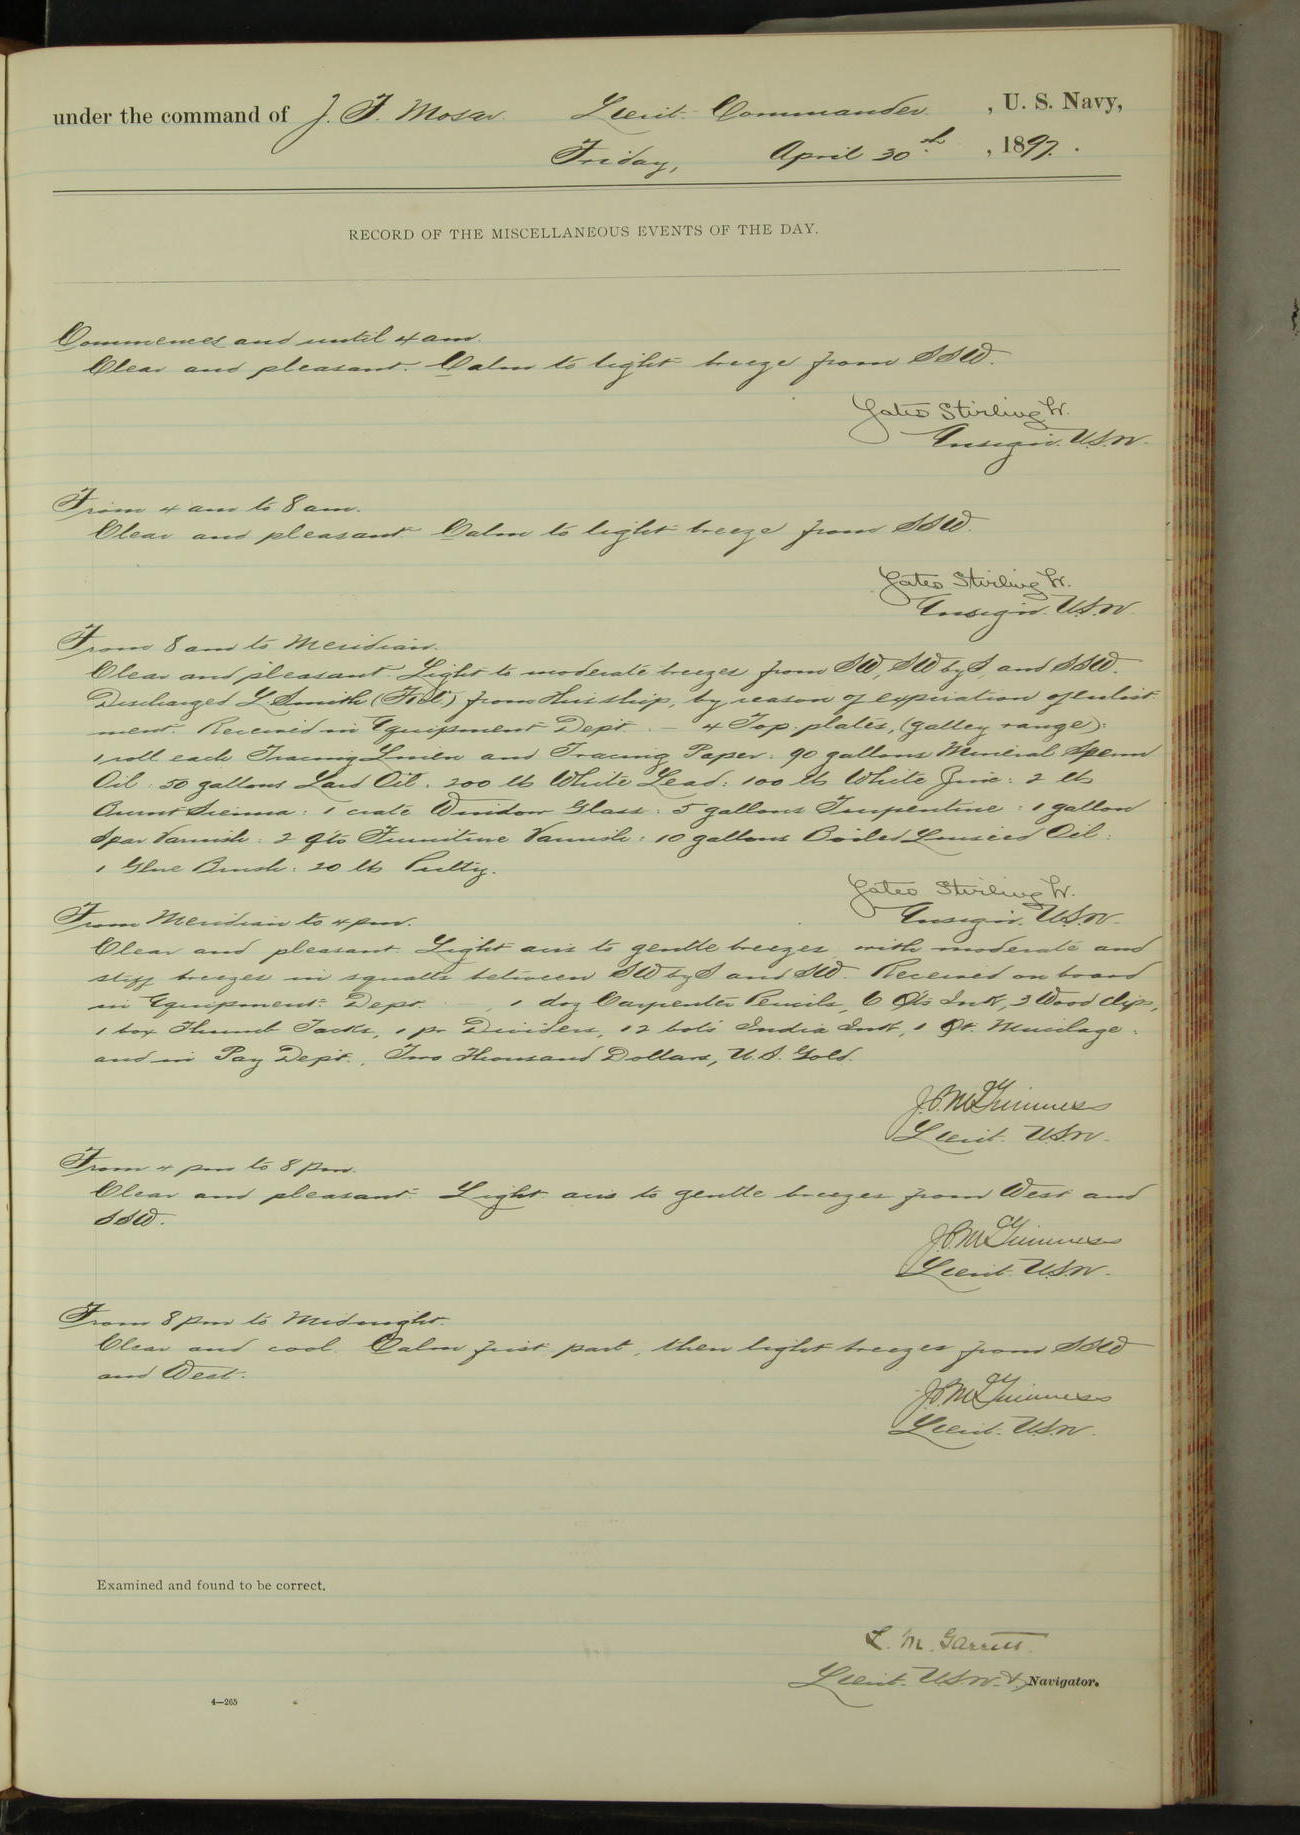 under the command of J. F. Moser Lieut. Commander, U. S. Navy,
Friday, April 30th, 1897.
RECORD OF THE MISCELLANEOUS EVENTS OF THE DAY.
Commences and until 4 am.
Clear and pleasant. Calm to light breeze from SSW.
Yates Stirling Jr.
Ensign. U.S.N.
From 4 am to 8 am.
Clear and pleasant. Calm to light breeze from SSW.
Yates Stirling Jr.
Ensign. U.S.N.
From 8 am to Meridian.
Clear and pleasant. Light to moderate breezes from SW, SW by S, and SSW.
Discharged L Smith, from this ship, by reason of expiration of enlist-
ment. Received in Equipment Dept. — 4 Top plates, (galley range):
1 roll each Tracing Linen and Tracing Paper: 90 gallons Mineral Sperm
Oil: 50 gallons Lard Oil: 200 lb White Lead: 100 lb White Zinc: 2 lb
Burnt Sienna: 1 crate Window Glass: 5 gallons Turpentine: 1 gallon
Spar Varnish: 2 qts Furniture Varnish: 10 gallons Boiled Linseed Oil:
1 Glue Brush: 20 lb Putty.
Yates Stirling Jr.
Ensign. U.S.N.
From Meridian to 4 pm.
Clear and pleasant. Light airs to gentle breezes, with moderate and
stiff breezes in squalls between SW by S and SW. Received on board
in Equipment Dept. 1 doz Carpenter Pencils, 6 Qts Ink, 3 Wood Clips,
1 box Thumb Tacks, 1 pr Dividers, 12 bots India Ink, 1 Qt. Mucilage:
and in Pay Dept., Two Thousand Dollars, U.S. Gold.
J. P. McGuinness
Lieut. U.S.N.
From 4 pm to 8 pm.
Clear and pleasant. Light airs to gentle breezes from West and
SSW.
J. P. McGuinness
Lieut. U.S.N.
From 8 pm to Midnight.
Clear and cool. Calm first part, then light breezes from SSW
and West.
J. P. McGuinness
Lieut. U.S.N.
Examined and found to be correct.
L. M. Garrett.
Lieut. U.S.N. &, Navigator.
4—265